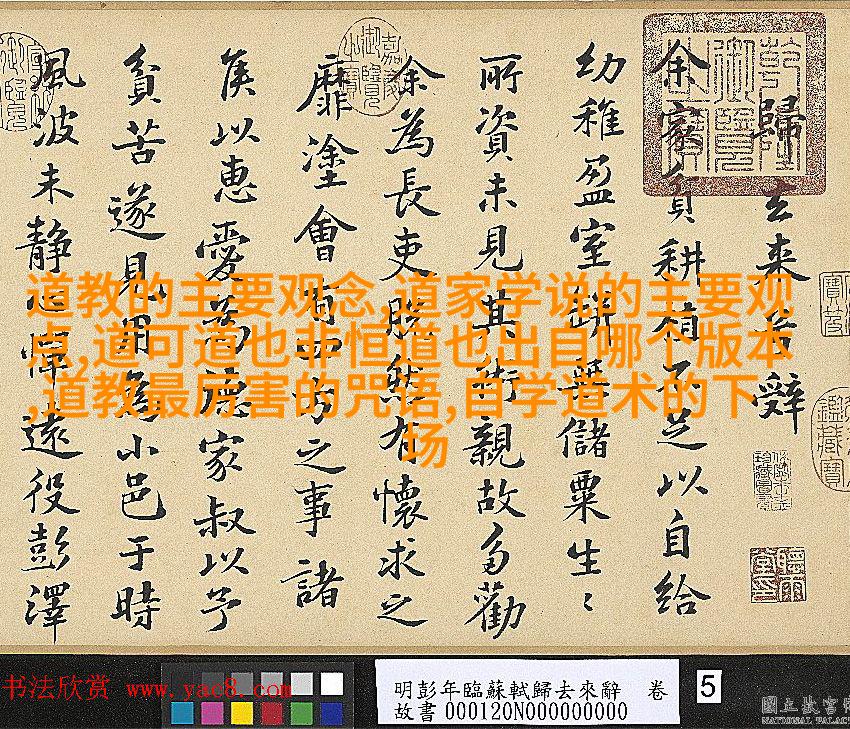 歸去来兮辤
余家貧耕植不足以自給
幼稚盈室缾無儲粟生〻
所資未見其術親故多勸
余為長吏脫然有懷求之
靡塗會有四方之事諸
侯以惠愛為德家叔以予
貧苦遂見用為小邑于時
風波未静心憚遠役彭澤
道教的主要观念,道家学说的主要观
点,道可道也非恒道也出自哪个版本
,道教最厉害的咒语,自学道术的下
场
书法欣赏 www.yac8.com
明彭年臨蘇軾歸去來辭 卷
故書000120N000000000
5
國立故宮博
NATIONAL PALAC